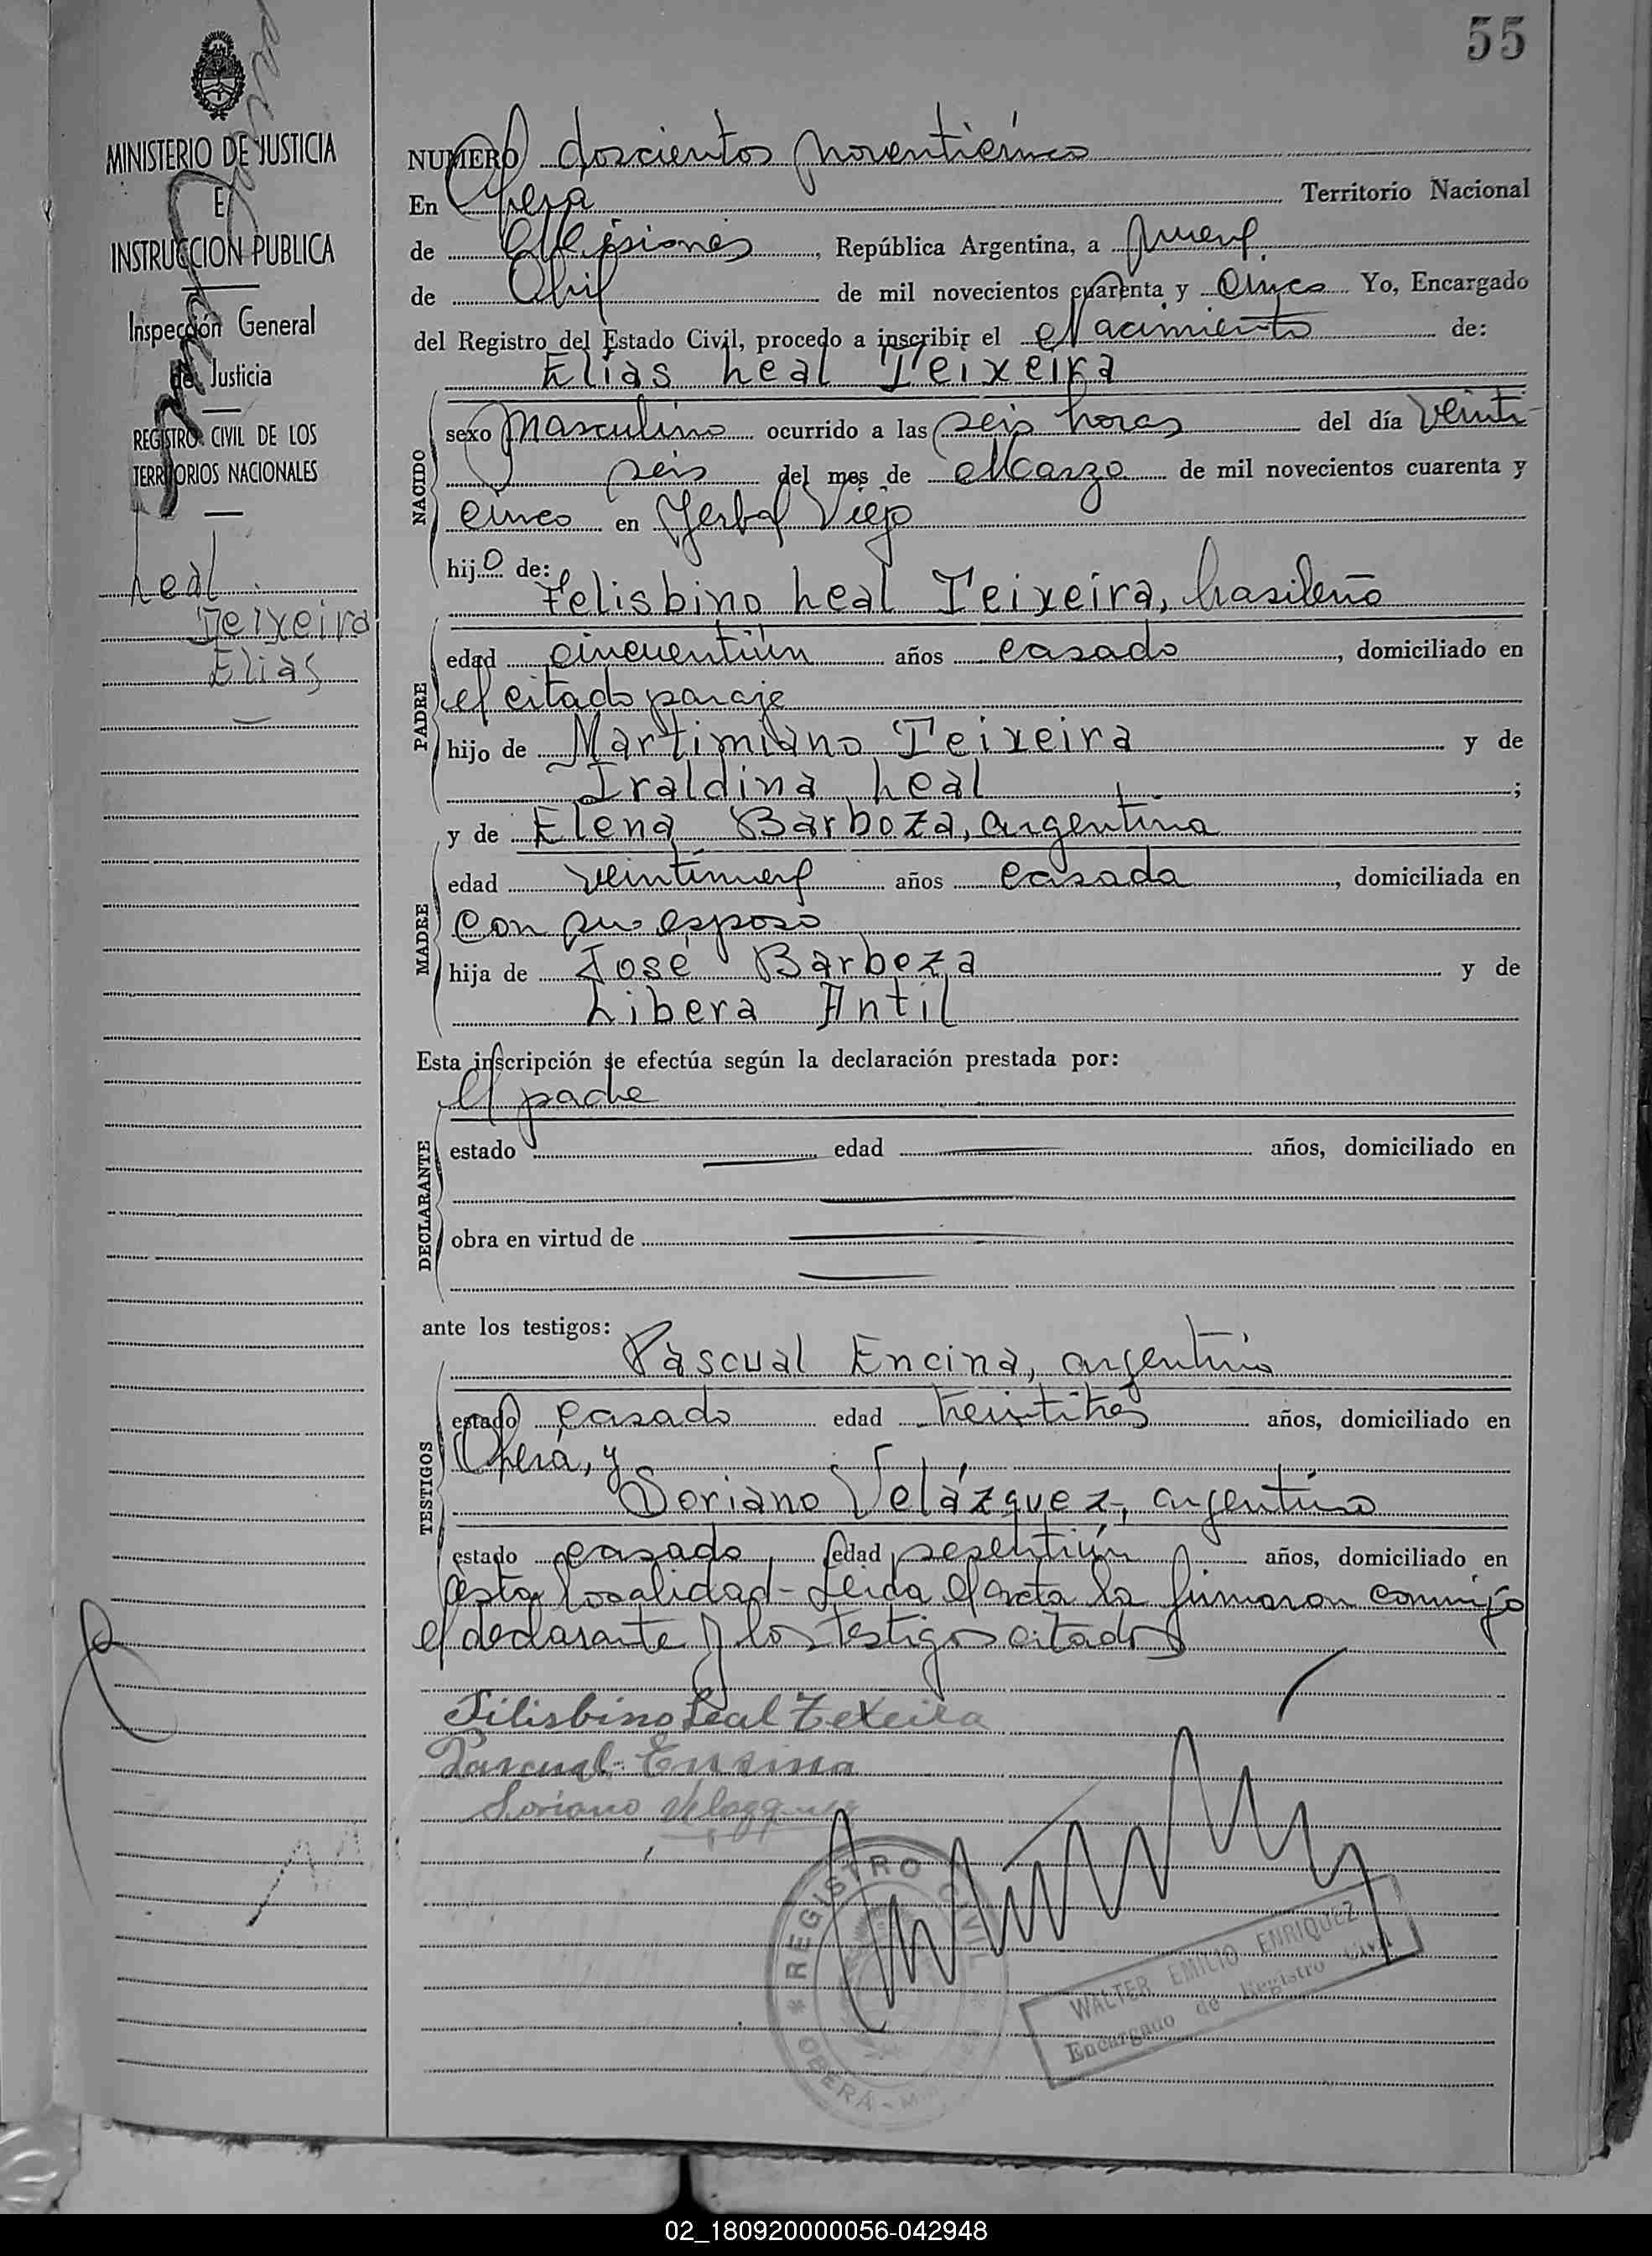 55
MINISTERIO DE JUSTICIA
E
INSTRUCCION PUBLICA
Inspección General
de Justicia
REGISTRO CIVIL DE LOS
TERRITORIOS NACIONALES
Leal
Teixeira
Elias
NUMERO doscientos noventicinco
En Oberá Territorio Nacional
de Misiones, República Argentina, a nueve
de Abril de mil novecientos cuarenta y cinco Yo, Encargado
del Registro del Estado Civil, procedo a inscribir el Nacimiento de:
Elias Leal Teixeira
NACIDO
sexo masculino ocurrido a las seis horas del día veinti
seis del mes de Marzo de mil novecientos cuarenta y
cinco en Yerbal Viejo
hijo de:
Felisbino Leal Teixeira, brasileño
PADRE
edad cincuentiún años casado, domiciliado en
el citado paraje
hijo de Martimiano Teixeira y de
Iraldina Leal;
y de Elena Barboza, argentina
MADRE
edad veintinueve años casada, domiciliada en
con su esposo
hija de José Barboza y de
Libera Antil
Esta inscripción se efectúa según la declaración prestada por:
el padre
DECLARANTE
estado edad años, domiciliado en
obra en virtud de
ante los testigos:
Pascual Encina, argentino
TESTIGOS
estado casado edad treintitrés años, domiciliado en
Oberá, y
Soriano Velázquez, argentino
estado casado, edad sesentiún años, domiciliado en
esta localidad- Leida el acta la firmaron conmigo
el declarante y los testigos citados
Filisbino Leal Texeira
Pascual Encina
Soriano
REGISTRO CIVIL
OBERÁ - M
WALTER EMILIO ENRIQUEZ
Encargado de Registro Civil
02_180920000056-042948